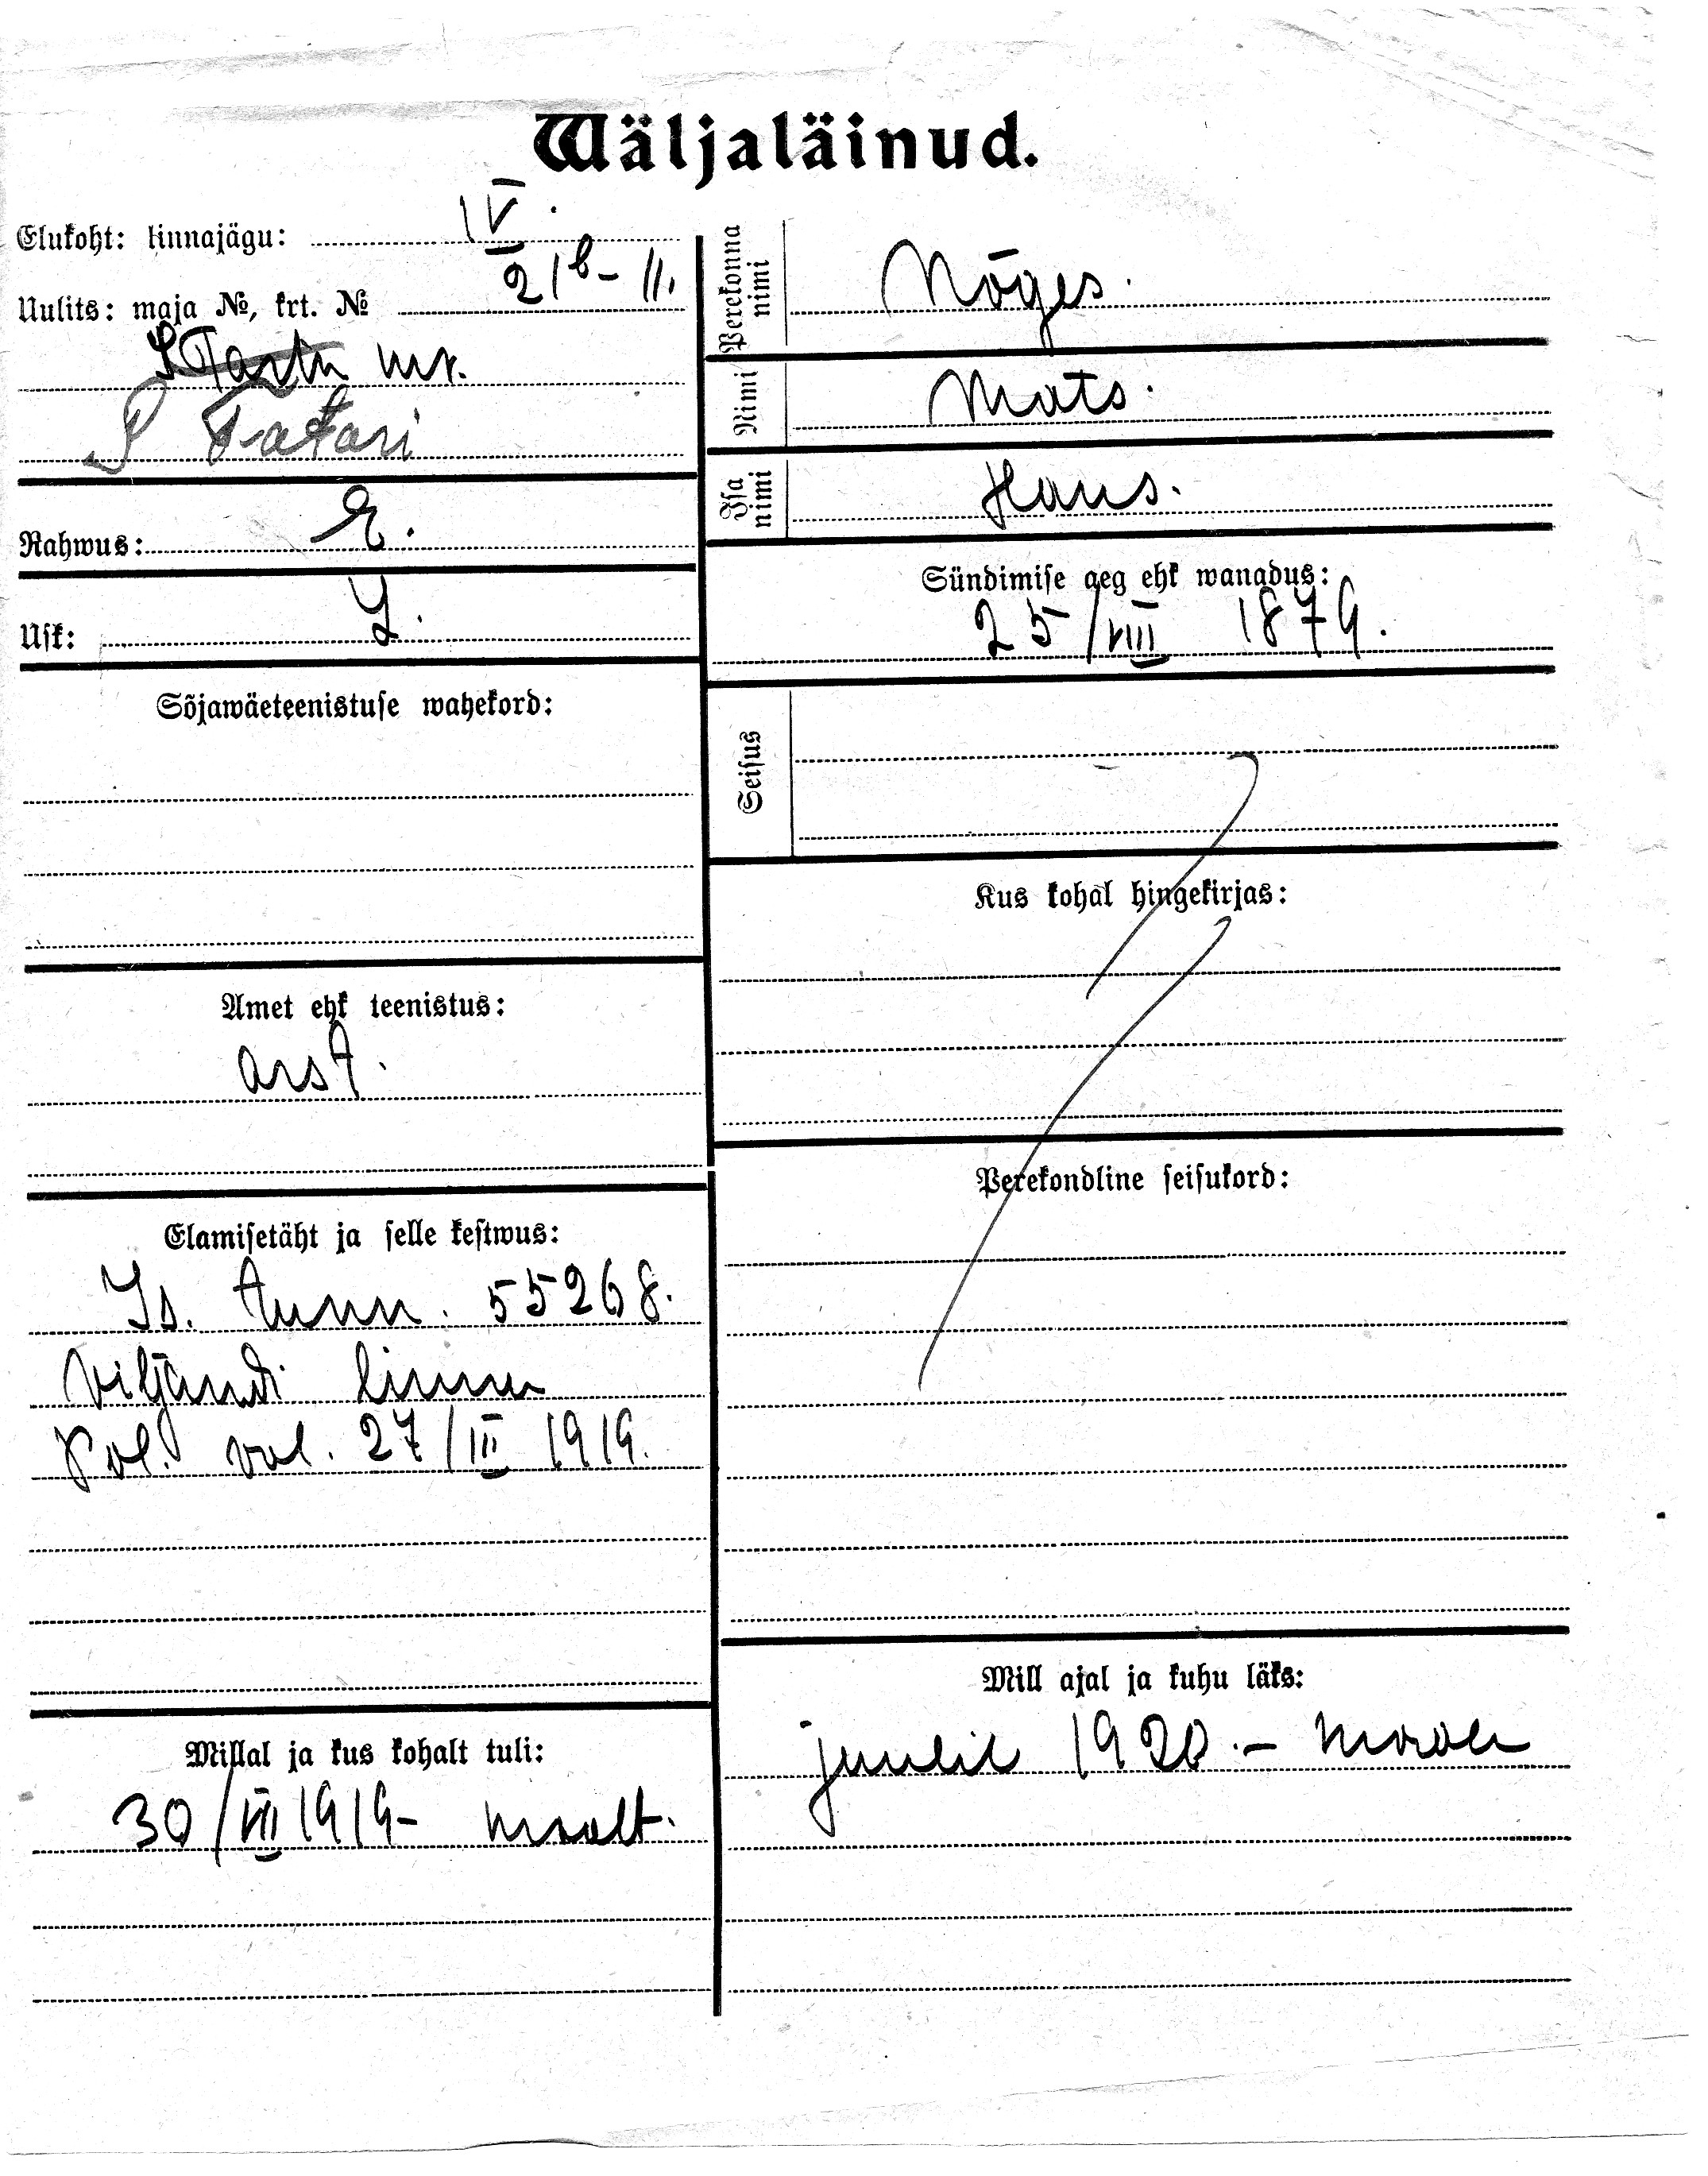 Wäljaläinud.
Elukoht: linnajägu: IV.
Uulits: maja №, krt. № 21b - 11.
S Tartu mr.
S Tatari
Rahwus: E.
Usk: L.
Sõjawäeteenistuse wahekord:
Amet ehk teenistus:
arst.
Elamisetäht ja selle kestwus:
Is. tunn. 55268.
Viljandi linna
Pol. val. 27/III 1919.
Millal ja kus kohalt tuli:
30/VII 1919 - maalt.
Perekonna nimi Nõges.
Nimi Mats.
Isa nimi Hans.
Sündimise aeg ehk wanadus:
25/VIII 1879.
Seisus
Kus kohal hingekirjas:
Perekondline seisukord:
Mill ajal ja kuhu läks:
juulil 1920. - maale